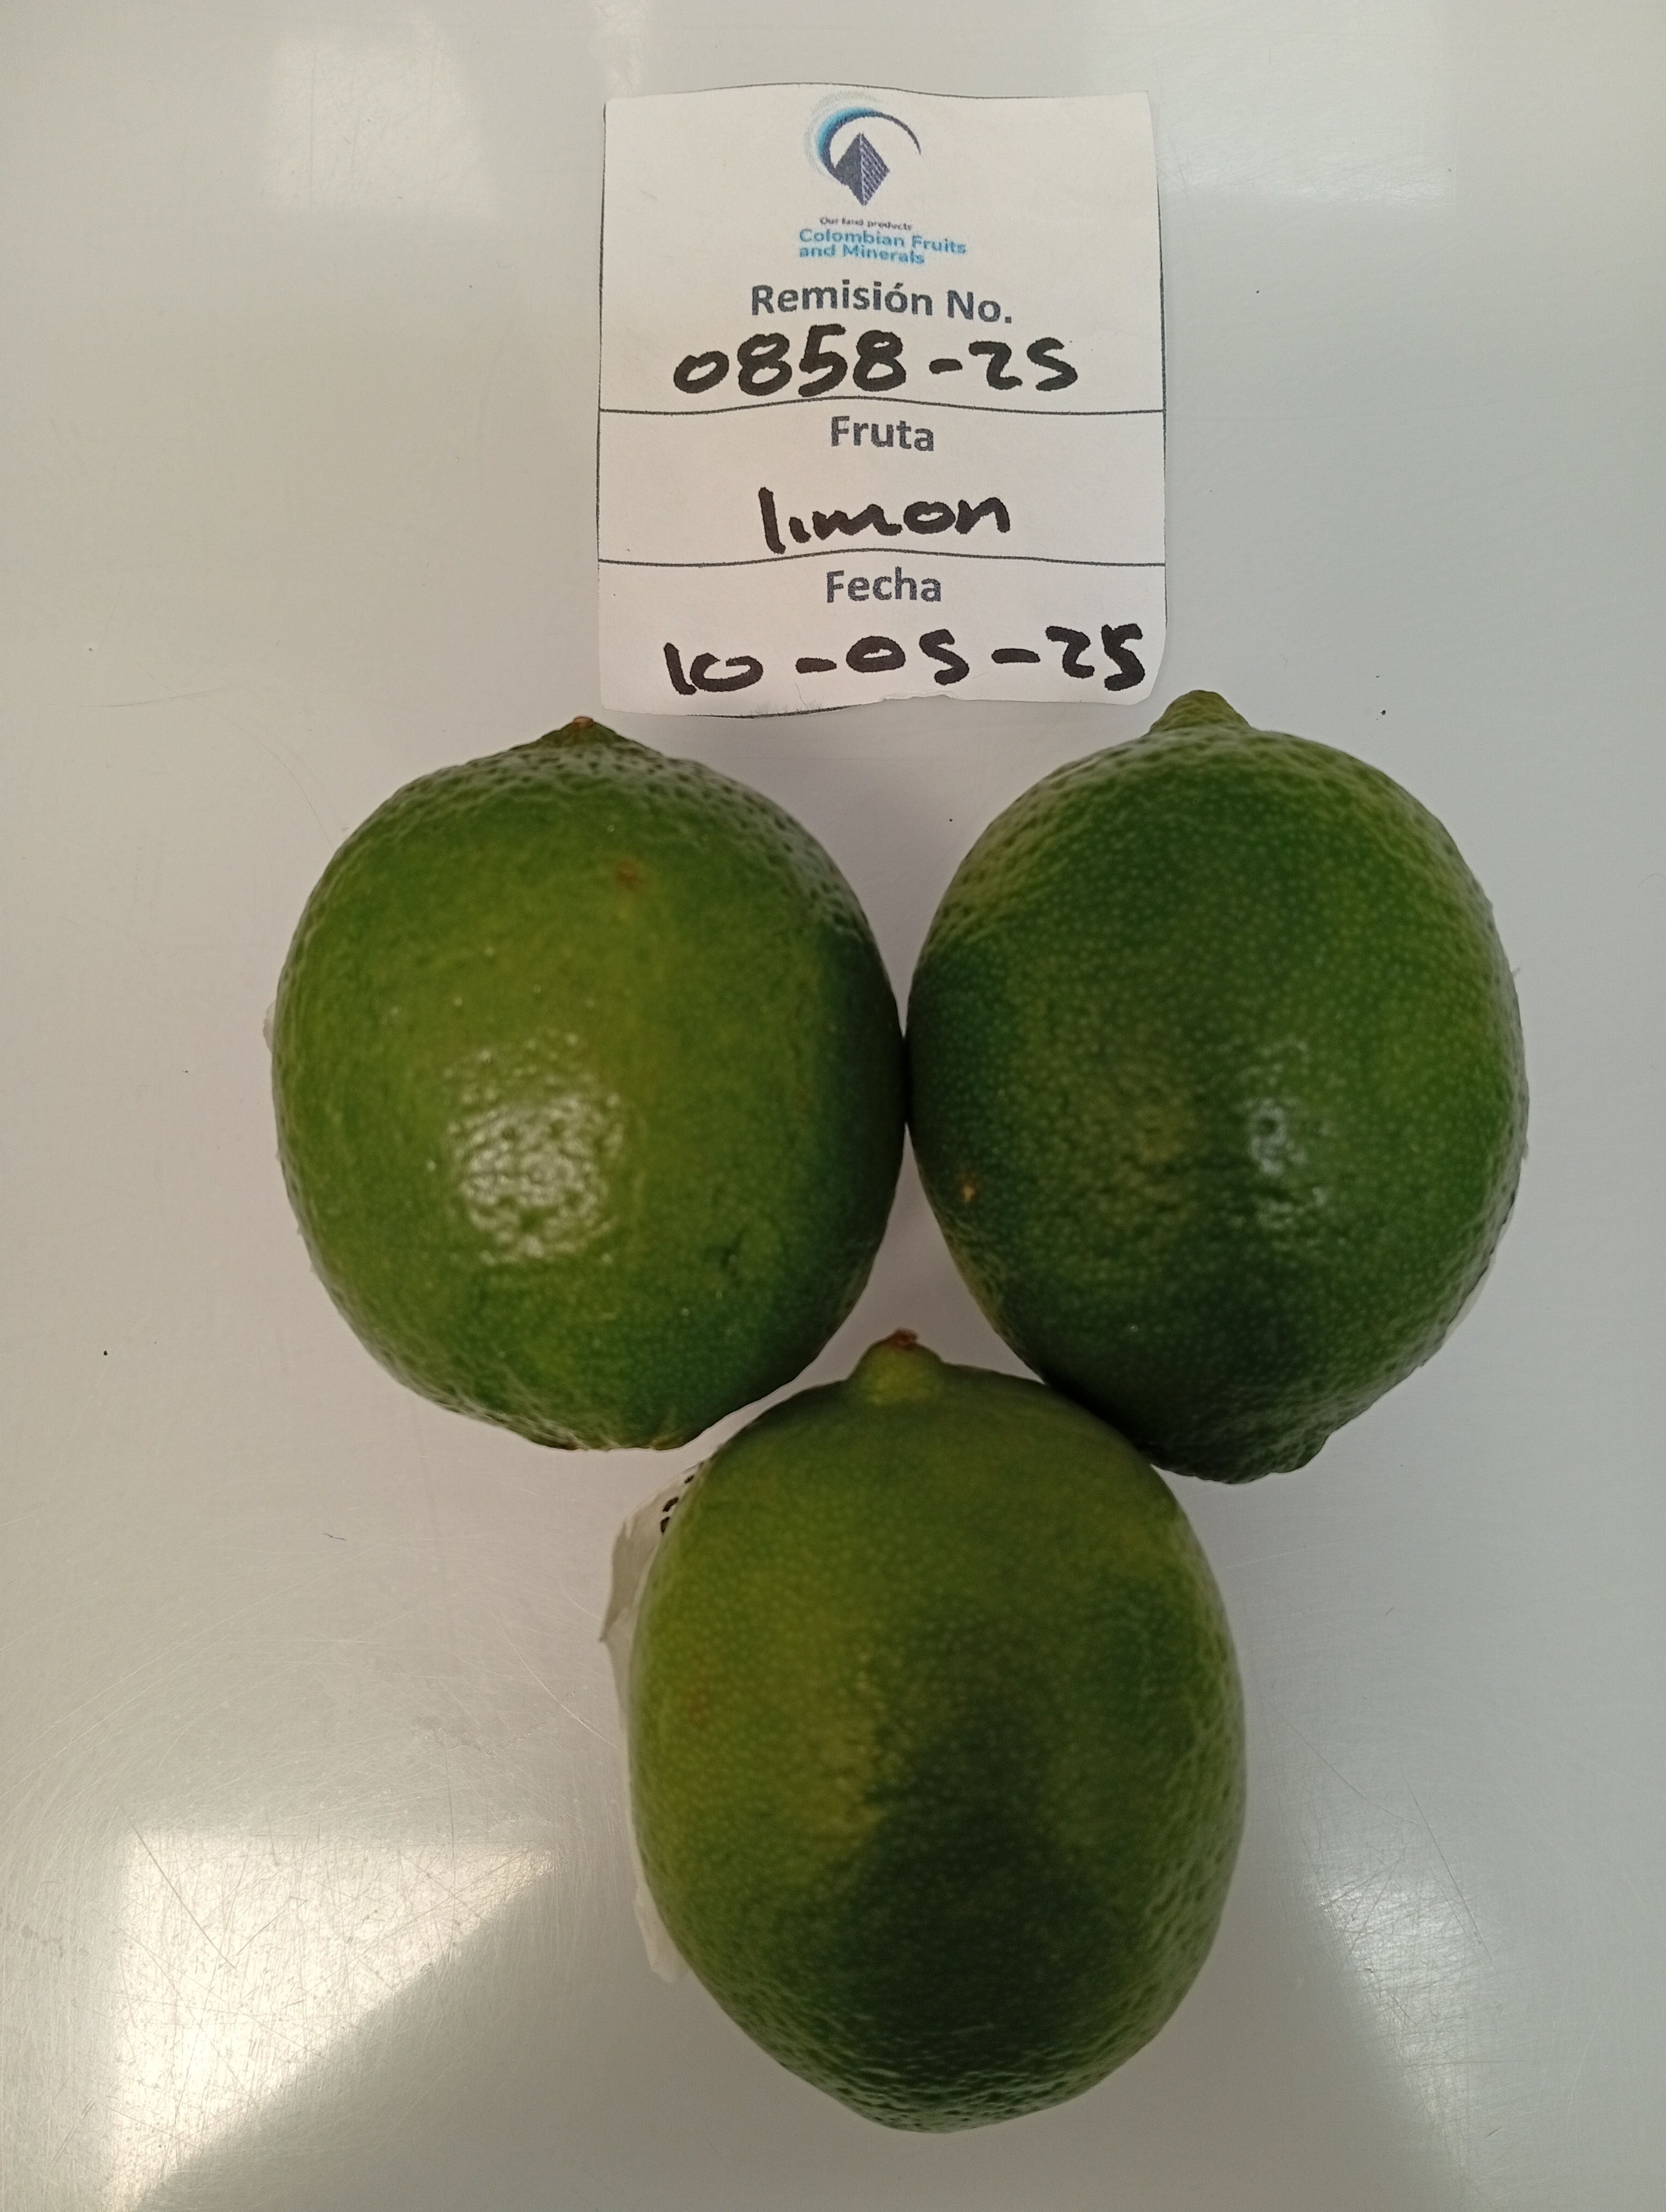 Our land products
Colombian Fruits
and Minerals
Remisión No.
0858-25
Fruta
limon
Fecha
10-05-25